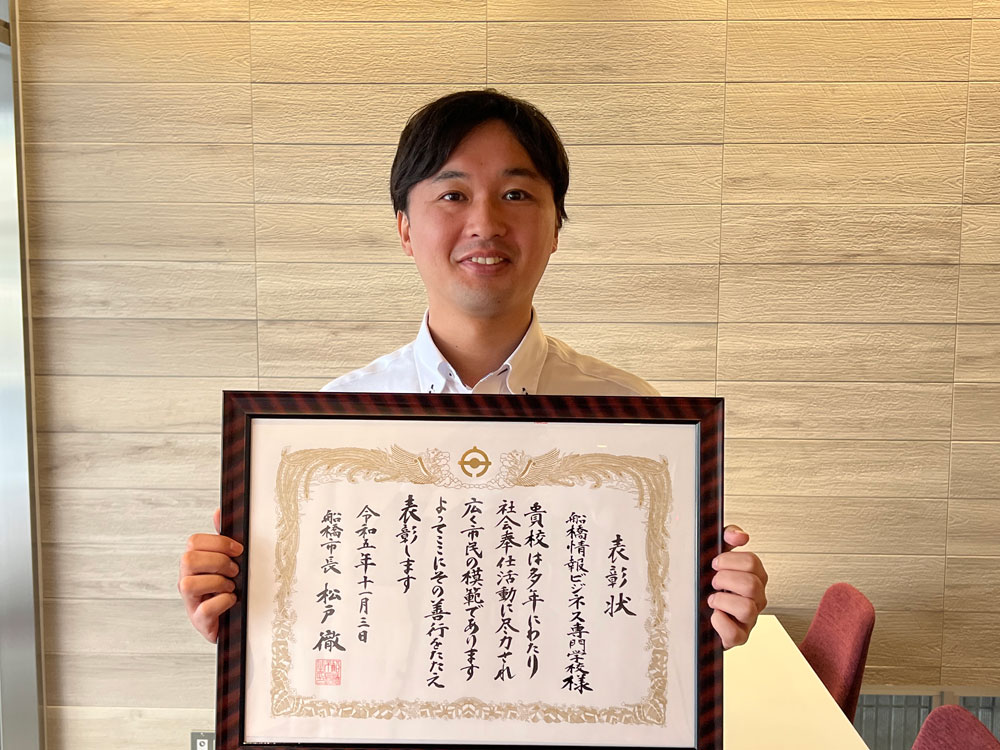 表彰状
船橋情報ビジネス専門学校様
貴校は多年にわたり
社会奉仕活動に尽力せられ
広く市民の模範であります
よってここにその善行をたたえ
表彰します
令和五年十一月三日
船橋市長 松戸徹